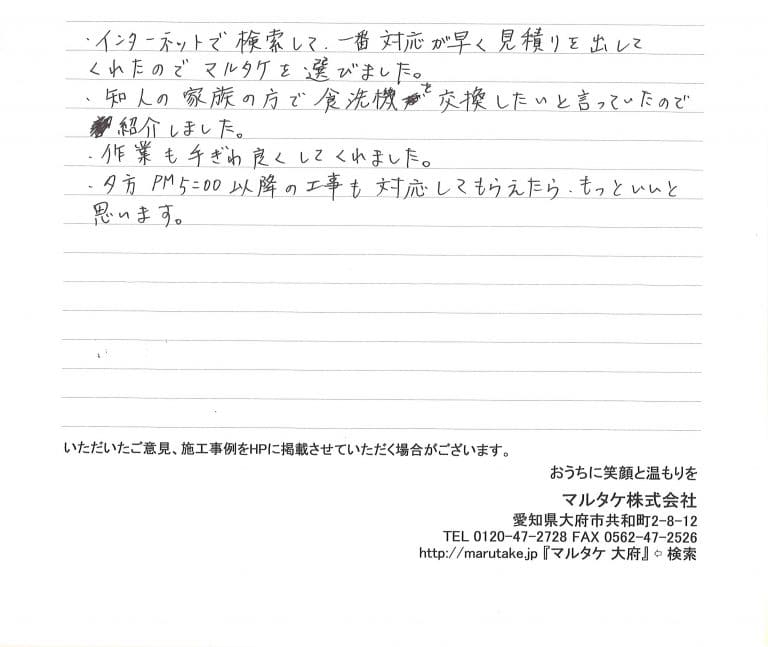 ・インターネットで検索して、一番対応が早く見積りを出して
くれたのでマルタケを選びました。
・知人の家族の方で食洗機を交換したいと言っていたので
紹介しました。
・作業も手ぎわ良くしてくれました。
・夕方 PM5:00以降の工事も対応してもらえたら、もっといいと
思います。
いただいたご意見、施工事例をHPに掲載させていただく場合がございます。
おうちに笑顔と温もりを
マルタケ株式会社
愛知県大府市共和町2-8-12
TEL 0120-47-2728 FAX 0562-47-2526
http://marutake.jp『マルタケ 大府』⇦検索